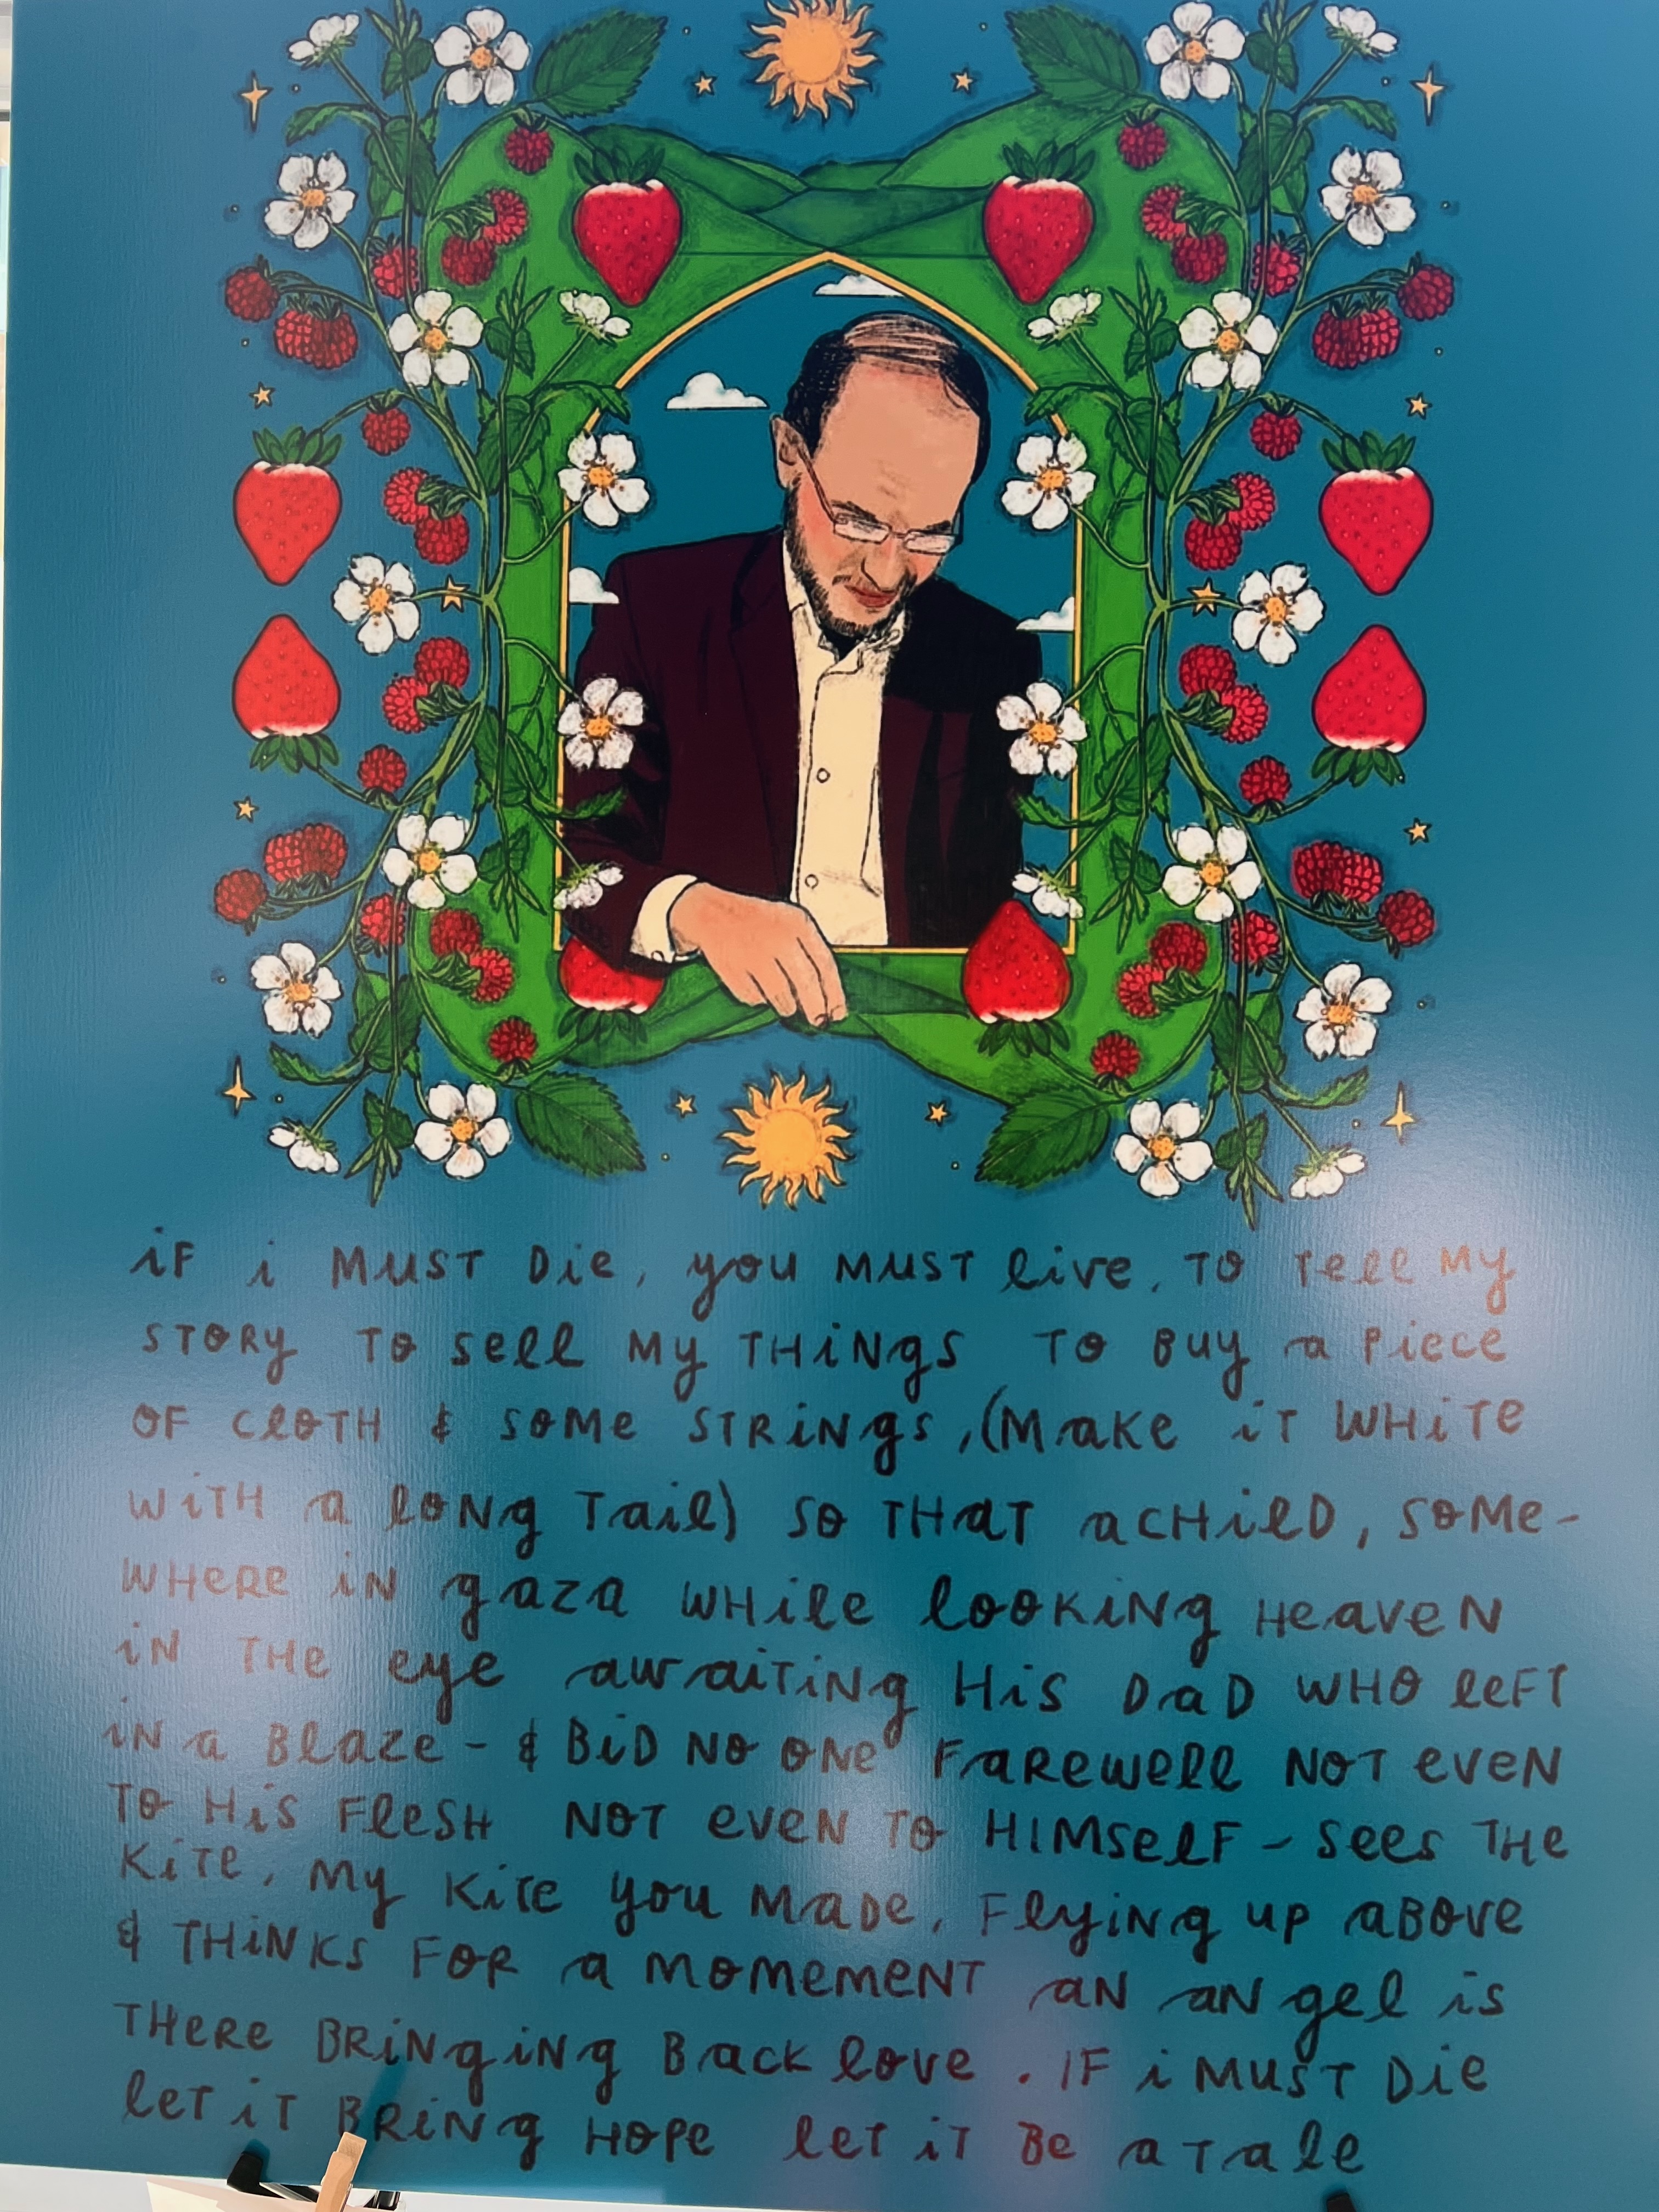 iF i MUST Die, you MUST live, TO Tell MY
STORY TO sell MY THiNgs TO BUY a Piece
OF CLOTH & SOMe STRiNgs, (Make iT WHiTe
WiTH a lONg Tail) SO THaT a CHilD, SOMe-
WHeRe iN gaza WHile lOOKiNg HeaveN
iN THe eye awaiTiNg His DaD WHO leFT
iN a Blaze - & BiD NO ONe FaRewell NOT eveN
TO His FlesH NOT eveN TO HIMSelF - sees THe
KiTe, MY KiTe you MaDe, FlyiNg up aBOve
& THiNKs FOR a MOMeMeNT aN aNgel is
THeRe BRiNgiNg Back lOve. IF i MUST Die
leT iT BRiNg HOPe leT iT Be a Tale